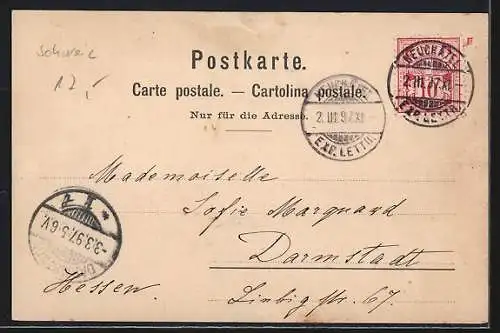 Schweiz
12,-
Postkarte.
Carte postale. — Cartolina postale.
Nur für die Adresse.
NEUCHATEL
2. III. 97. XI
EXP. LETTR.
10
NEUCHATEL
2. III. 97. XI-
EXP. LETTR.
Mademoiselle
Sofie Marquard
Darmstadt
Liebig str. 67.
Hessen.
-3.3.97.5-6.V.